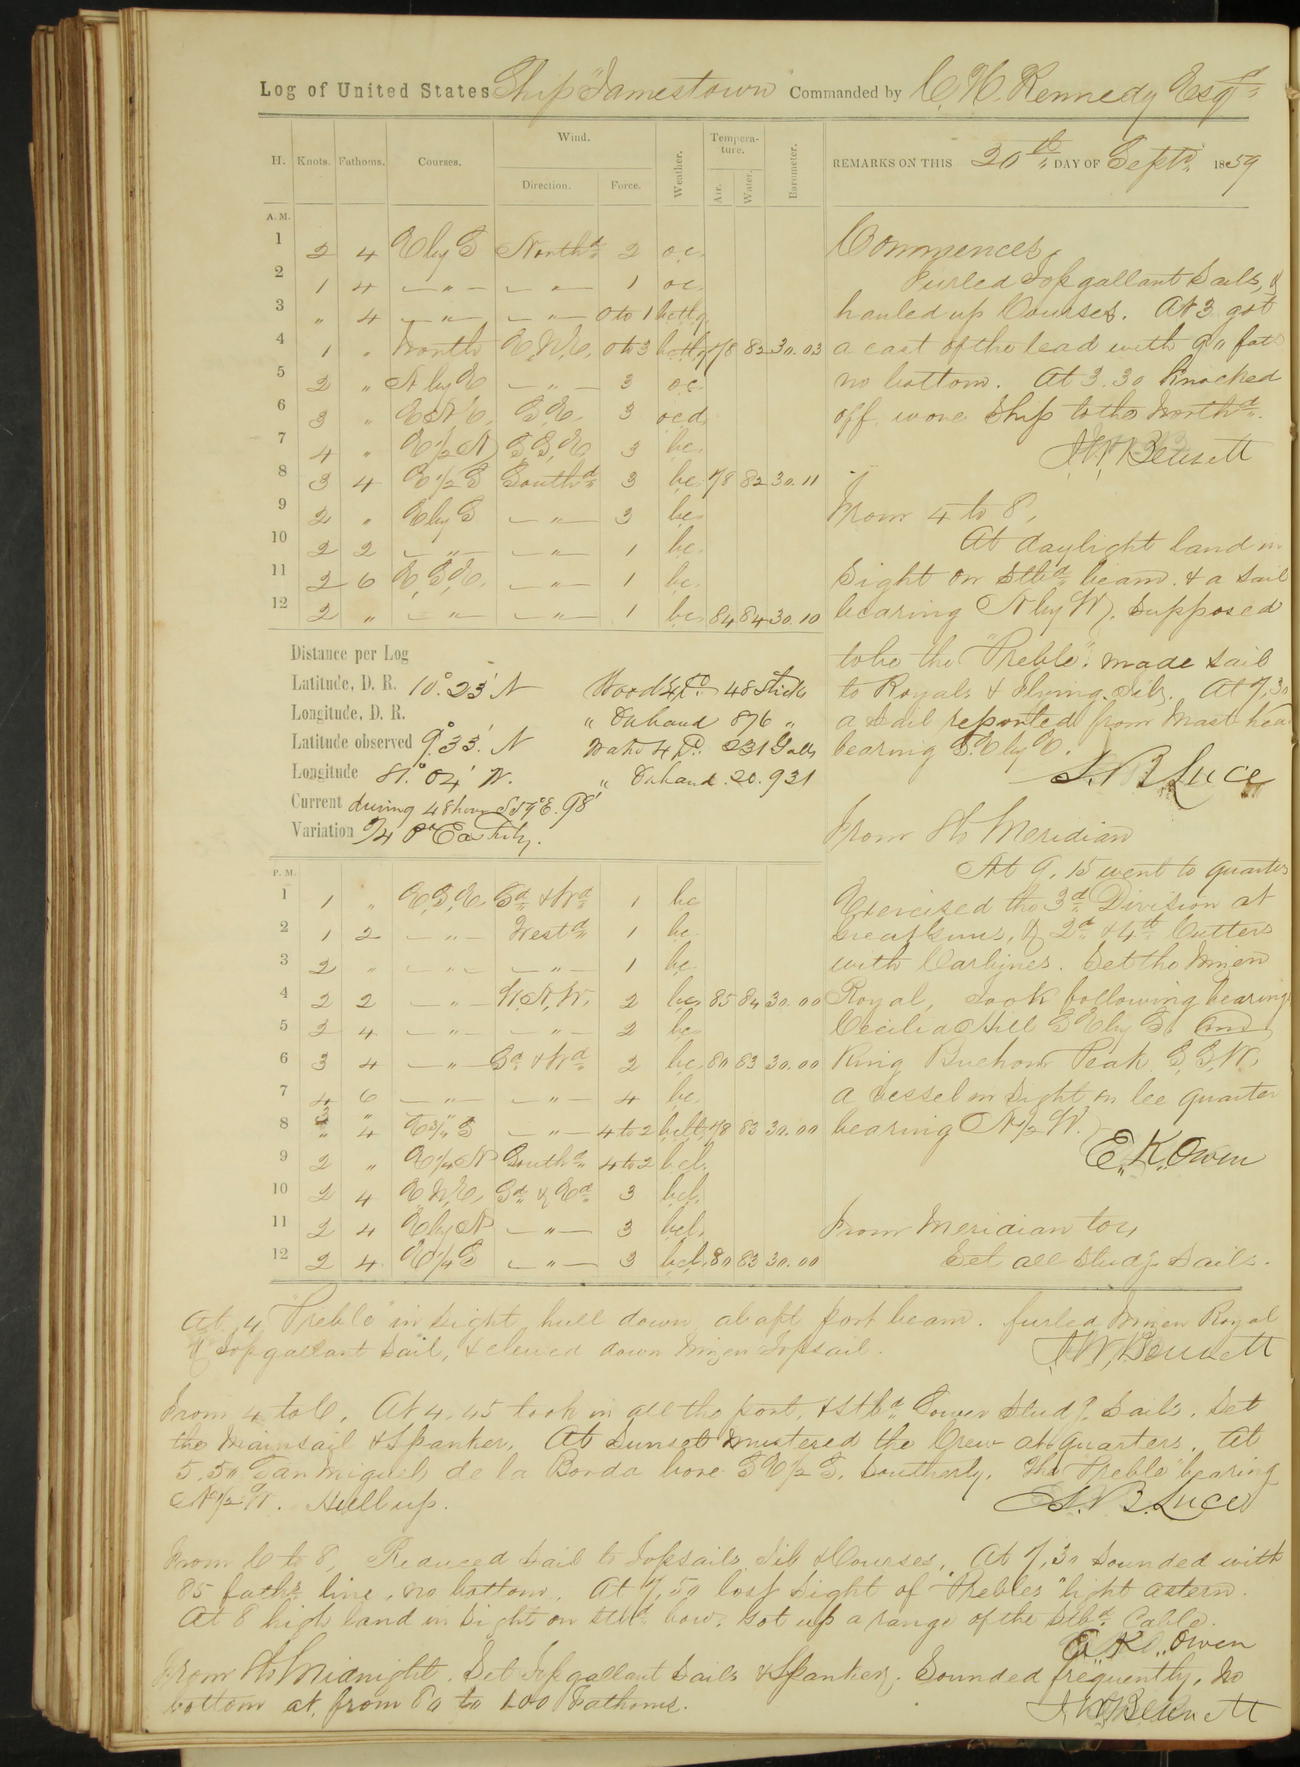 Log of United States Ship "Jamestown" Commanded by C. H. Kennedy Esqr
H. Knots. Fathoms. Courses. Wind. Direction. Force. Weather. Tempera-ture. Air. Water. Barometer. REMARKS ON THIS 20th DAY OF Septr 1859
A. M.
1 2 4 E by S Northd 2 o.c.
2 1 4 — " — — " — 1 oc
3 " 4 — " — — " — 0 to 1 bctlq
4 1 " North E.N.E. 0 to 3 78 82 30.03
5 2 " N by E — " — 3 oc
6 3 " E.N.E. S.E. 3 ocd.
7 4 " E 1/2 N S.S.E. 3 bc.
8 3 4 E 1/2 S Southd 3 bc 78 82 30.11
9 2 " E by S — " — 3 bc
10 2 2 — " — — " — 1 bc.
11 2 6 E.S.E. — " — 1 bc.
12 2 " — " — — " — 1 bc 84 84 30.10
Commences,
Furled Topgallant Sails, &
hauled up Courses. At 3 got
a cast of the lead with 90 fats
no bottom. At 3.30 knocked
off, wore Ship to the Northd.
J. W. Bennett
From 4 to 8,
At daylight land in
sight on Stbd beam. & a sail
bearing N by W, supposed
to be the "Preble". made sail
to Royals & Flying Jib. At 7,30
a sail reported from mast hea
bearing S.E by E.
S. B. Luce
From 8 to Meridian
At 9.15 went to quarters
Exercised the 3d Division at
Great Guns, & 2d & 4th Cutters
with Carbines. Set the Mizen
Royal, Took following bearings
Cecilia Hill S E by S. and
King Buchom Peak S.S.W.
a vessel in sight on lee quarter
bearing N 1/2 W.
E. K. Owen
From Meridian to 4,
Set all Studg Sails.
Distance per Log
Latitude, D. R. 10° 23' N Wood 48 Sticks
Longitude, D. R. " On hand 876 "
Latitude observed 9° 33' N Water 231 Galls
Longitude 81° 04' W. " On hand 20.931
Current during 48 hours S 59° E. 98'
Variation 3/4 Pt Easterly.
P. M.
1 1 " E.S.E. Sd & Wd 1 bc
2 1 2 — " — Westd 1 bc
3 2 " — " — — " — 1 bc
4 2 2 — " — W.N.W. 2 bc 85 84 30.00
5 2 4 — " — — " — 2 bc
6 3 4 — " — Sd & Wd 2 bc 80 83 30.00
7 4 6 — " — — " — 4 bc
8 4 E 3/4 S — " — 4 to 2 78 83 30.00
9 2 " E 1/4 N Southd 4 to 2 bcl.
10 2 4 E.N.E. Sd & Ed 3 bcl.
11 2 4 E by N — " — 3 bcl.
12 2 4 E 1/4 S — " — 3 bcl. 80 83 30.00
At 4 "Preble" in sight, hull down, abaft port beam. furled Mizen Royal
& Topgallant Sail, & clewed down Mizen Topsail.
J. W. Bennett
From 4 to 6, At 4.45 took in all the port, & Stbd Lower Studg Sails. Set
the Mainsail & Spanker. At Sunset mustered the Crew at quarters. At
5.50 San Miguel de la Borda bore S E 1/2 S. Southerly. The "Preble" bearing
N 1/2 W. Hull up.
S. B. Luce
From 6 to 8, Reduced sail to Topsails Jib & Courses. At 7,30 sounded with
85 faths line, no bottom. At 7,50 lost sight of "Prebles" light astern.
At 8 high land in sight on Stbd bow. Got up a range of the Stbd Cable.
E. K. Owen
From 8 to Midnight. Set Topgallant Sails & Spanker. Sounded frequently, no
bottom at from 80 to 100 Fathoms.
J. W. Bennett